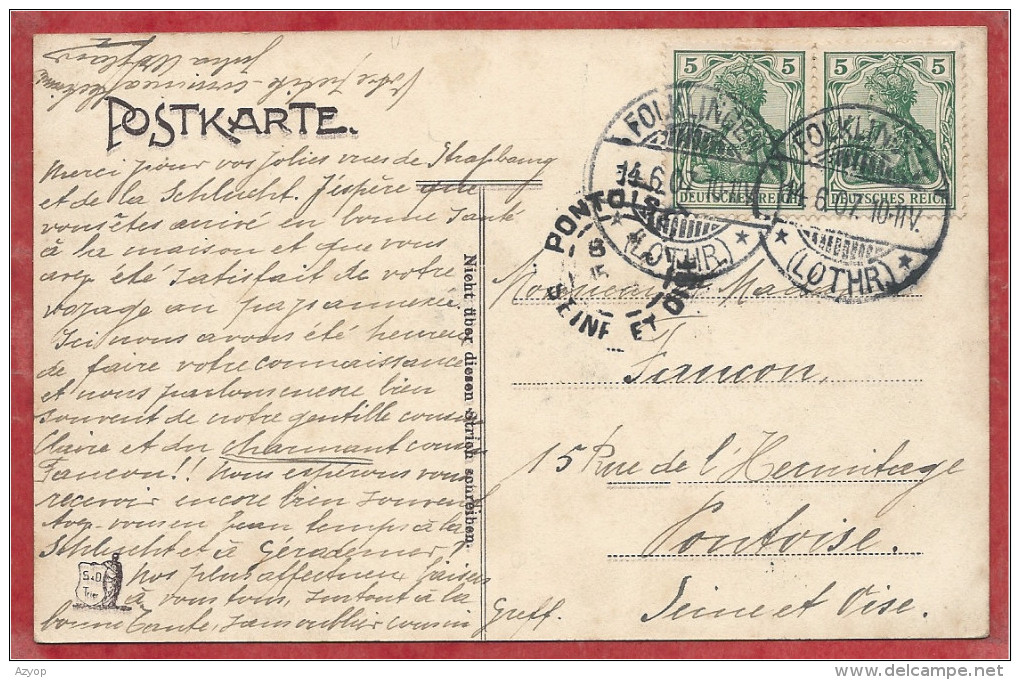 POSTKARTE.
Merci pour vos jolies vues de Straßburg
et de la Schlucht. J'espère que
vous êtes arrivé en bonne Santé
à la maison et que vous
avez été satisfait de votre
voyage au pays annexé.
Ici nous avons été heureux
de faire votre connaissance
et nous parlons encore bien
souvent de notre gentille cousine
Claire et du charmant cousin
Faucon!! Nous espérons vous
recevoir encore bien souvent
Avez-vous eu beau temps à la
Schlucht et à Gérardmer?
Nos plus affectueux baisers
à vous tous, surtout à la
bonne Tante, sans oublier cousin
Greff.
Votre
Julia
Nicht über diesen Strich schreiben.
S&D
5 5
DEUTSCHES REICH
5 5
DEUTSCHES REICH
FOLKLINGEN
14.6.07. 10-11V.
(LOTHR.)
FOLKLINGEN
14.6.07. 10-11V.
(LOTHR.)
PONTOISE
SEINE ET OISE
Monsieur Mar
Faucon,
15 Rue de l'Hermitage
Pontoise.
Seine et Oise.
Azyop
delcampe.net